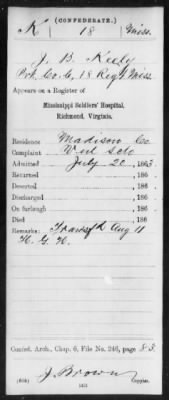 (CONFEDERATE.)
K 18 Miss.
J. B. Keely
Pvt. Co. G, 18 Reg't Miss.
Appears on a Register of
Mississippi Soldiers' Hospital,
Richmond, Virginia.
Residence Madison Co
Complaint
Admitted July 20, 1863
Returned , 186 .
Deserted , 186 .
Discharged , 186 .
On furlough , 186 .
Died , 186 .
Remarks: Transf'd Aug 11
Confed. Arch., Chap. 6, File No. 246, page 83
J. Brown
Copyist.